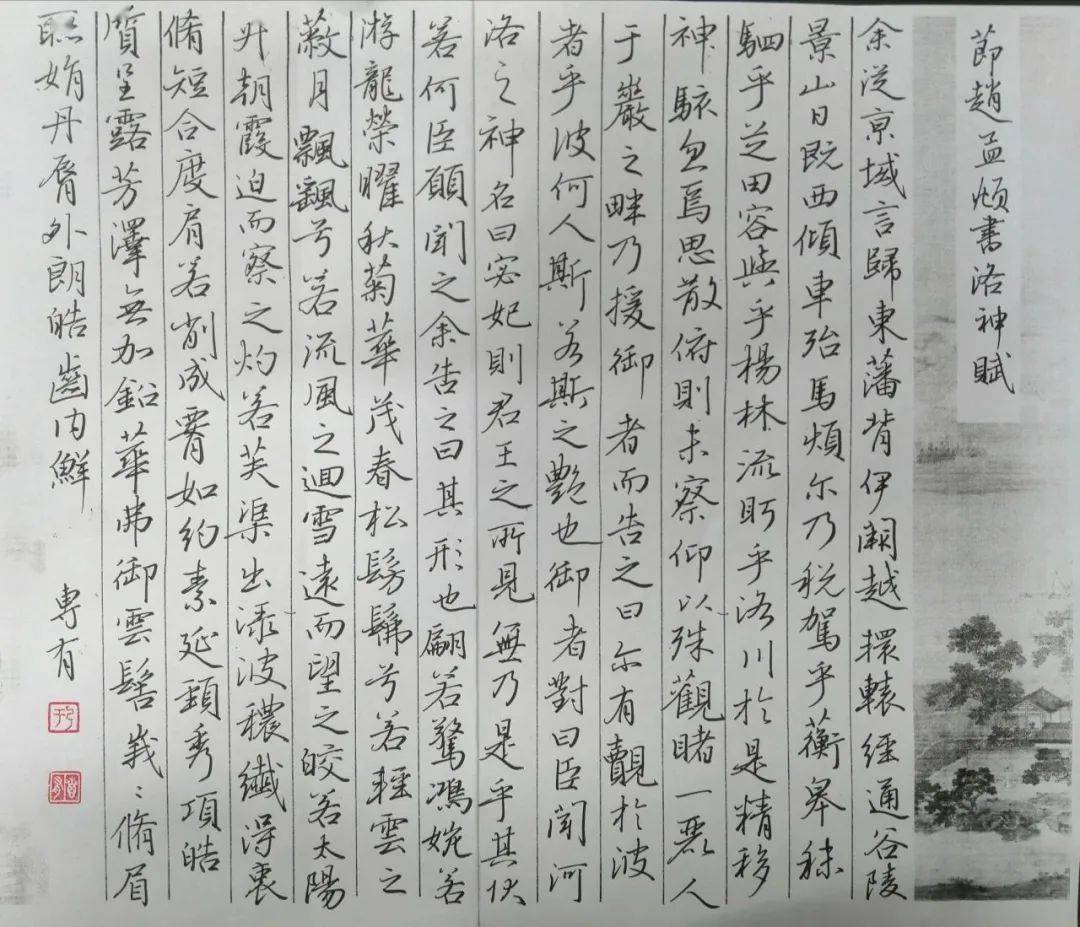 節趙孟頫書洛神賦
余從京域言歸東藩背伊闕越轘轅經通谷陵
景山日既西傾車殆馬煩尔乃税駕乎蘅皋秣
駟乎芝田容與乎楊林流眄乎洛川於是精移
神駭忽焉思散俯則未察仰以殊觀睹一麗人
于巖之畔乃援御者而告之曰尔有覿於彼
者乎彼何人斯若斯之艷也御者對曰臣聞河
洛之神名曰宓妃則君王之所見無乃是乎其狀
若何臣願聞之余告之曰其形也翩若驚鴻婉若
游龍榮曜秋菊華茂春松髣髴兮若輕雲之
蔽月飄颻兮若流風之迴雪遠而望之皎若太陽
升朝霞迫而察之灼若芙渠出淥波穠纖得衷
脩短合度肩若削成腰如約素延頸秀項皓
質呈露芳澤無加鉛華弗御雲髻峩〻脩眉
聯娟丹脣外朗皓齒内鮮
專有